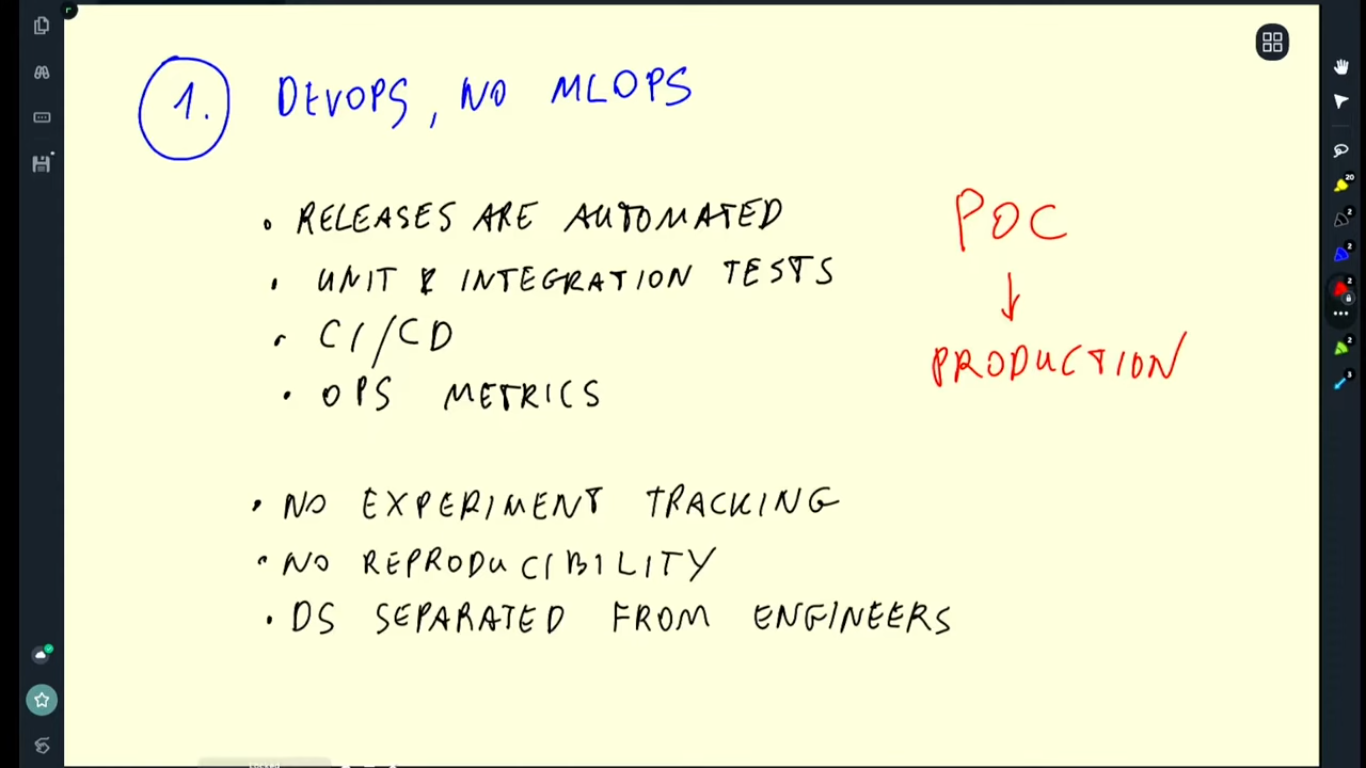 1. DEVOPS, NO MLOPS
• RELEASES ARE AUTOMATED
• UNIT & INTEGRATION TESTS
• CI/CD
• OPS METRICS
POC
↓
PRODUCTION
• NO EXPERIMENT TRACKING
• NO REPRODUCIBILITY
• DS SEPARATED FROM ENGINEERS
20
2
2
2
2
3